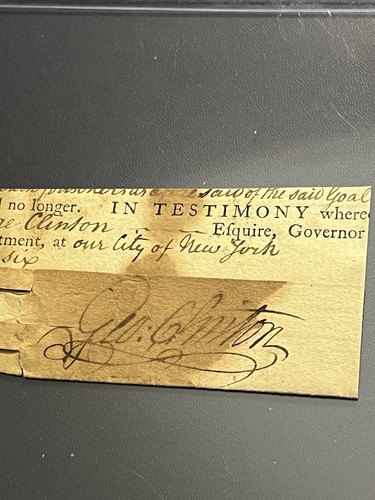 said of the said Goal
no longer. IN TESTIMONY where
Clinton Eſquire, Governor
tment, at our City of New York
six
Geo: Clinton